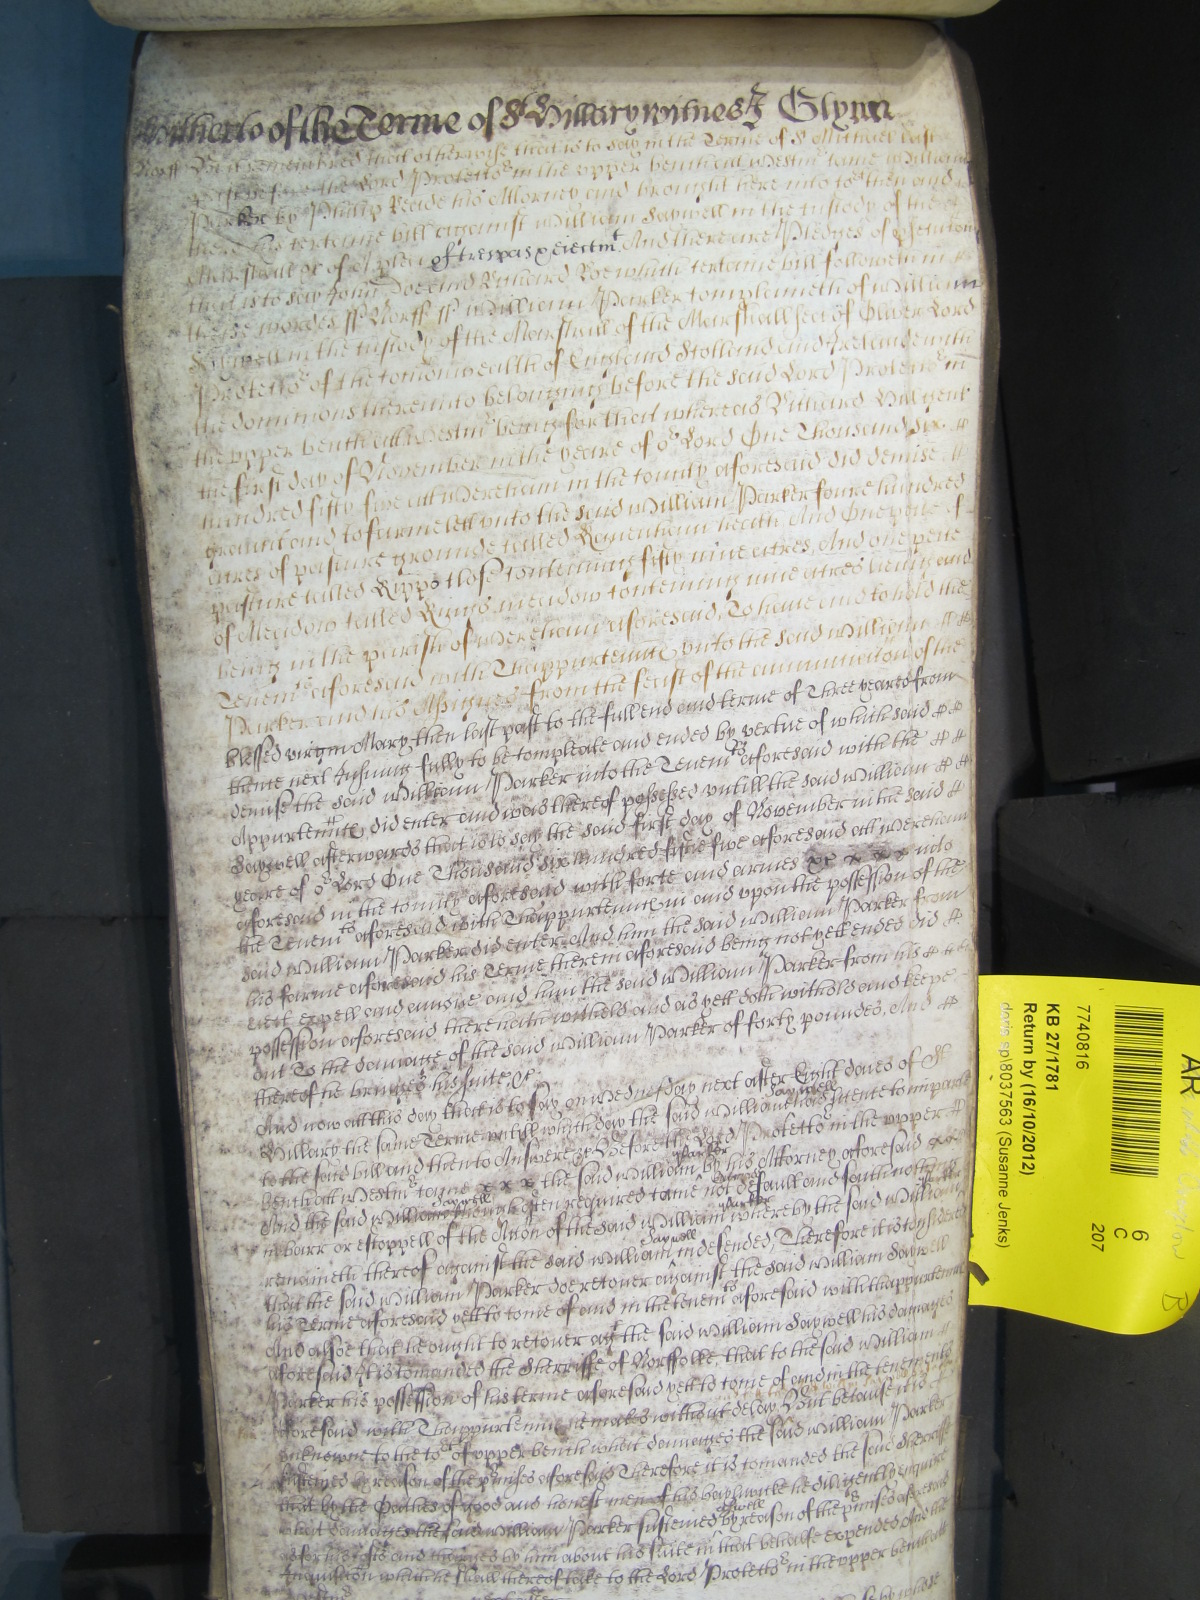 hitherto of the Terme of St Hillary witnes J Glynn
Norff Be it remembred that otherwise that is to say in the Terme of St Michael last
past before the Lord Protector in the upper bench att Westmr came William
Parker by Philip Reade his Attorney and brought here into Cort then and
there his certaine bill against William Saywell in the custody of the
Marshall &c of a plea of trespas & eiectmt And there are Pledges of
that is to say John Doe and Richard Roe which certaine bill followeth in
these wordes ss Norff ss William Parker complaineth of William
Saywell in the custody of the Marshall of the Marshallsea of Oliver Lord
Protector of the comonwealth of England Scotland and Ireland with
the dominions thereunto belonging before the said Lord Protector in
the upper bench att Westmr being for that whereas Richard
the first day of November in the yeare of or Lord One Thousand six #
hundred fifty five att Weretham in the county aforesaid did demise #
graunt and to farme lett unto the said William Parker foure hundred
acres of pasture grounde called heath And One peice of
pasture called close conteining fifty nine acres, And one peice
of Meadow called Kings meadow conteining nine acres being and
being in the parish of Weretham aforesaid, To have and to hold the
Tenemts aforesaid with Thappurtennces unto the said William ##
Parker and his Assignes from the feast of the annunciation of the
blessed virgin Mary then last past to the full end and terme of Three yeares from
thence next Ensuing fully to be compleate and ended by vertue of which said ##
demise the said William Parker into the Tenemts aforesaid with the ##
Appurtennces did enter and was thereof possessed untill the said William #
Saywell afterwards that is to say the said first day of November in the said #
yeare of or Lord One Thousand six hundred fiftie five aforesaid att Weretham
aforesaid in the county aforesaid with force and armes &c x x x into
the Tenemts aforesaid with Thappurtennces in and upon the possession of the
said William Parker did enter And him the said William Parker from
his farme aforesaid his Terme therein aforesaid being not yett ended did #
eiect expell and amove and him the said William Parker from his ##
possession aforesaid there hath witheld and as yett doth withold and keepe
out To the damage of the said William Parker of forty poundes, And #
thereof he bringeth his suite &c
And now att this day that is to say on Wednesday next after Eight dayes of St
Hillary the same Terme untill which day the said William Saywell had licence to imparle
to the said bill and then to Answere &c Before the Lord Protector in the upper #
bench att Westmr came x x x the said William Parker by his Attorney aforesaid xx
And the said William Saywell though often required came not Saywell default and saith nothing
in barr or estoppell of the Action of the said William Parker whereby the said William Parker
remaineth thereof against the said William Saywell undefended, Therefore it is considered
that the said William Parker doe recover against the said William Saywell
his Terme aforesaid yett to come of and in the tenemts aforesaid with thappurtennces
And alsoe that he ought to recover agt the said William Saywell his damages
aforesaid It is comanded the Sherriffe of Norffolke, that to the said William #
Parker his possession of his terme aforesaid yett to come of and in the tenements
aforesaid with Thappurtennces he make without delay, But because it is
unknowne to the Cort of upper bench what damages the said William Parker
susteined by reason of the prmises aforesaid Therefore it is comanded the said Sherriffe
that by the Oathes of good and honest men of his baylywicke he diligently enquire
what damages the said William Parker susteined by reason of the prmises aforesaid
as for his costs and charges by him about his suite in that behalfe expended And the
Inquisition which he shall thereof take to the Lord Protector in the upper bench att
Westmr
AR
6
C
207
7740816
KB 27/1781
Return by (16/10/2012)
doris sp\8037563 (Susanne Jenks)